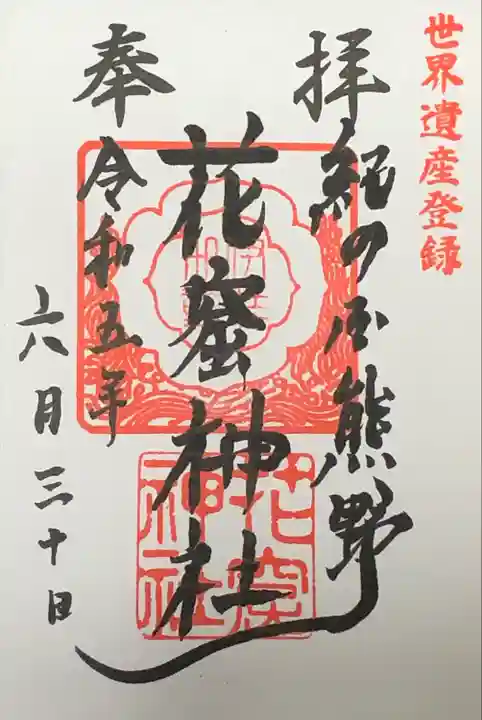 世界遺産登録
奉拝
紀の国熊野
花窟神社
令和五年
六月三十日
花窟
神社